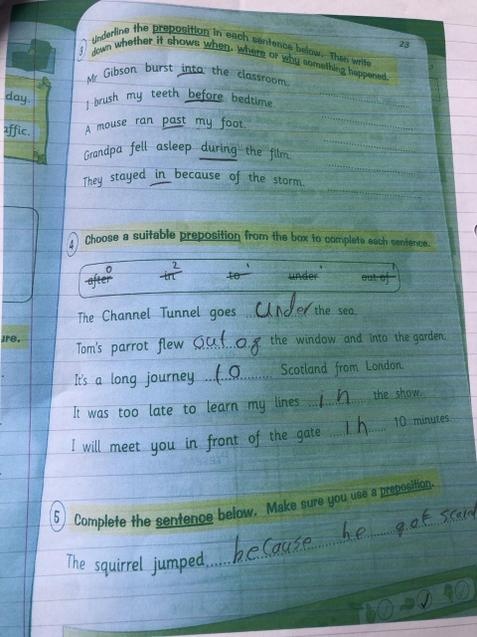 23
3 Underline the preposition in each sentence below. Then write
down whether it shows when, where or why something happened.
Mr Gibson burst into the classroom.
I brush my teeth before bedtime.
A mouse ran past my foot.
Grandpa fell asleep during the film.
They stayed in because of the storm.
day.
affic.
4 Choose a suitable preposition from the box to complete each sentence.
0 2 1 1 1
after in to under out of
The Channel Tunnel goes under the sea.
Tom's parrot flew out of the window and into the garden.
It's a long journey to Scotland from London.
It was too late to learn my lines in the show.
I will meet you in front of the gate in 10 minutes.
ure.
5 Complete the sentence below. Make sure you use a preposition.
The squirrel jumped because he got scared